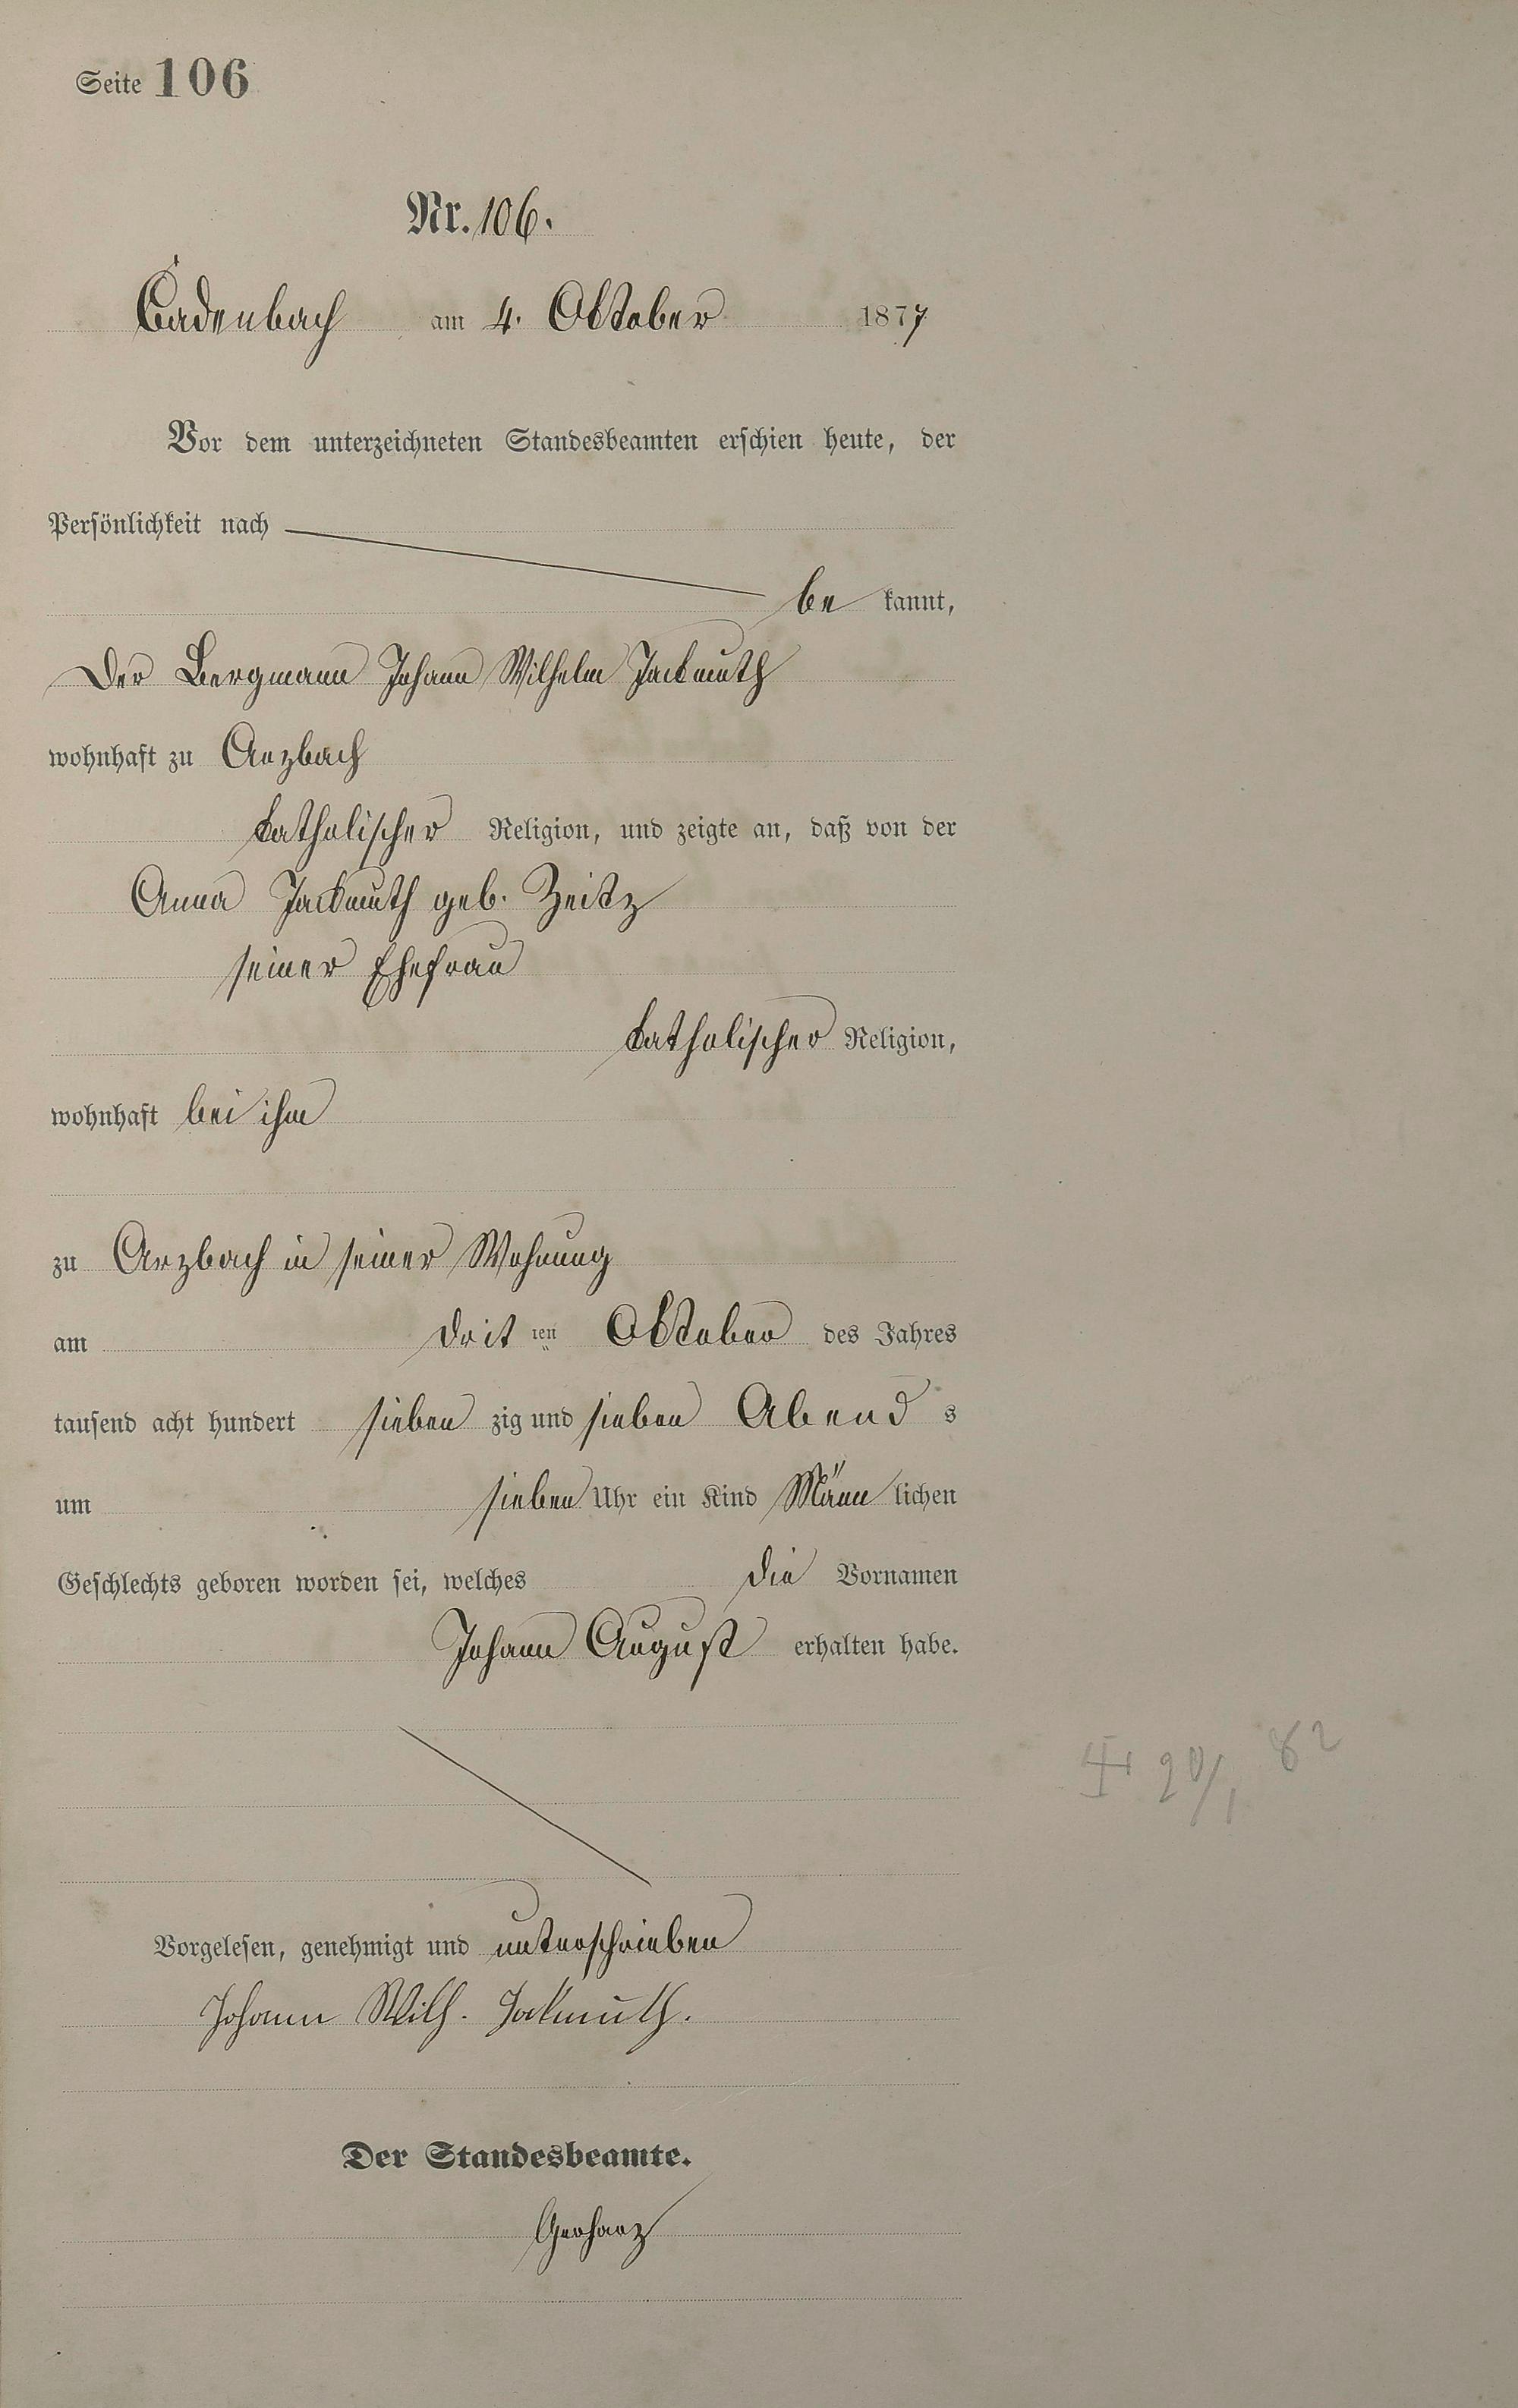 Seite 106
Nr. 106.
Cadenbach am 4. Oktober 1877
Vor dem unterzeichneten Standesbeamten erschien heute, der
Persönlichkeit nach
be kannt,
der Bergmann Johann Wilhelm Jackmuth
wohnhaft zu Arzbach
katholischer Religion, und zeigte an, daß von der
Anna Jackmuth geb. Zeitz
seiner Ehefrau
katholischer Religion,
wohnhaft bei ihm
zu Arzbach in seiner Wohnung
am drit ten Oktober des Jahres
tausend acht hundert sieben zig und sieben Abend s
um sieben Uhr ein Kind Männ lichen
Geschlechts geboren worden sei, welches die Vornamen
Johann August erhalten habe.
20/1 82
Vorgelesen, genehmigt und unterschrieben
Johann Wilh. Jakmuth.
Der Standesbeamte.
Gerharz